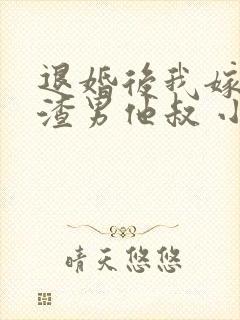 退婚後我嫁
渣男他叔 小
晴天悠悠